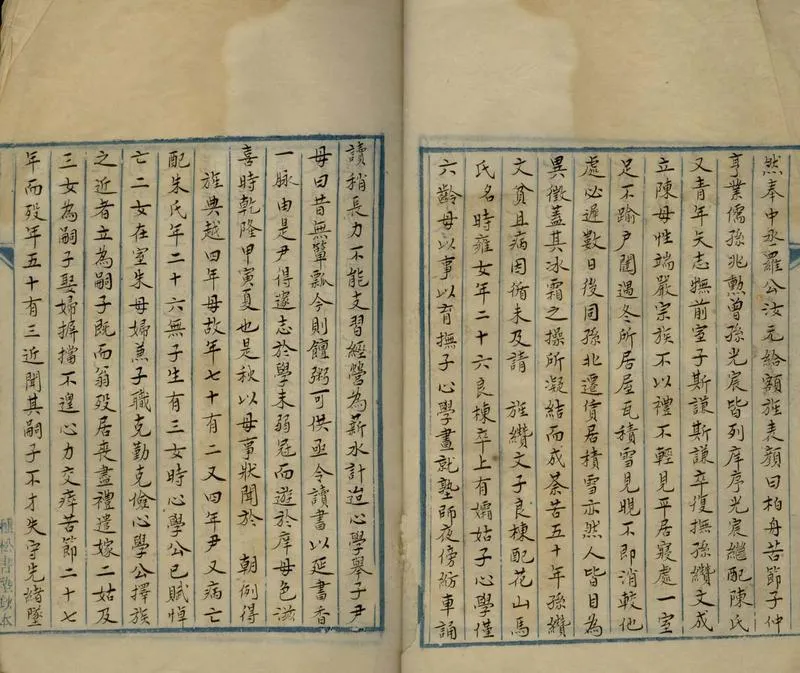 然奉中丞羅公汝元給額旌表顏曰柏舟苦節子仲
亨業儒孫兆勲曽孫光宸皆列庠序光宸繼配陳氏
又青年矢志撫前室子斯謙斯謙卒復撫孫纘文成
立陳母性端嚴宗族不以禮不輕見平居寢處一室
足不踰户閾過冬所居屋瓦積雪見晛不即消較他
處必遲數日後同孫北遷賃居積雪亦然人皆目為
異徵蓋其冰霜之操所凝結而成茶苦五十年孫纘
文貧且病因循未及請　旌纘文子良棟配花山馬
氏名時雍女年二十六良棟卒上有孀姑子心學僅
六齡母以事以育撫子心學畫就塾師夜傍紡車誦
讀稍長力不能支習經營為薪水計迨心學舉子尹
母曰昔無簞瓢今則饘粥可供亟令讀書以延書香
一脉由是尹得遂志於學未弱冠而遊於庠母色滋
喜時乾隆甲寅夏也是秋以母事狀聞於　朝例得
旌典越四年母故年七十有二又四年尹又病亡
配朱氏年二十六無子生有三女時心學公已賦悼
亡二女在室朱母婦兼子職克勤克儉心學公擇族
之近者立為嗣子既而翁殁居喪盡禮遣嫁二姑及
三女為嗣子娶婦摒擋不遑心力交瘁苦節二十七
年而殁年五十有三近聞其嗣子不才失守先緒墜
植松書塾鈔本